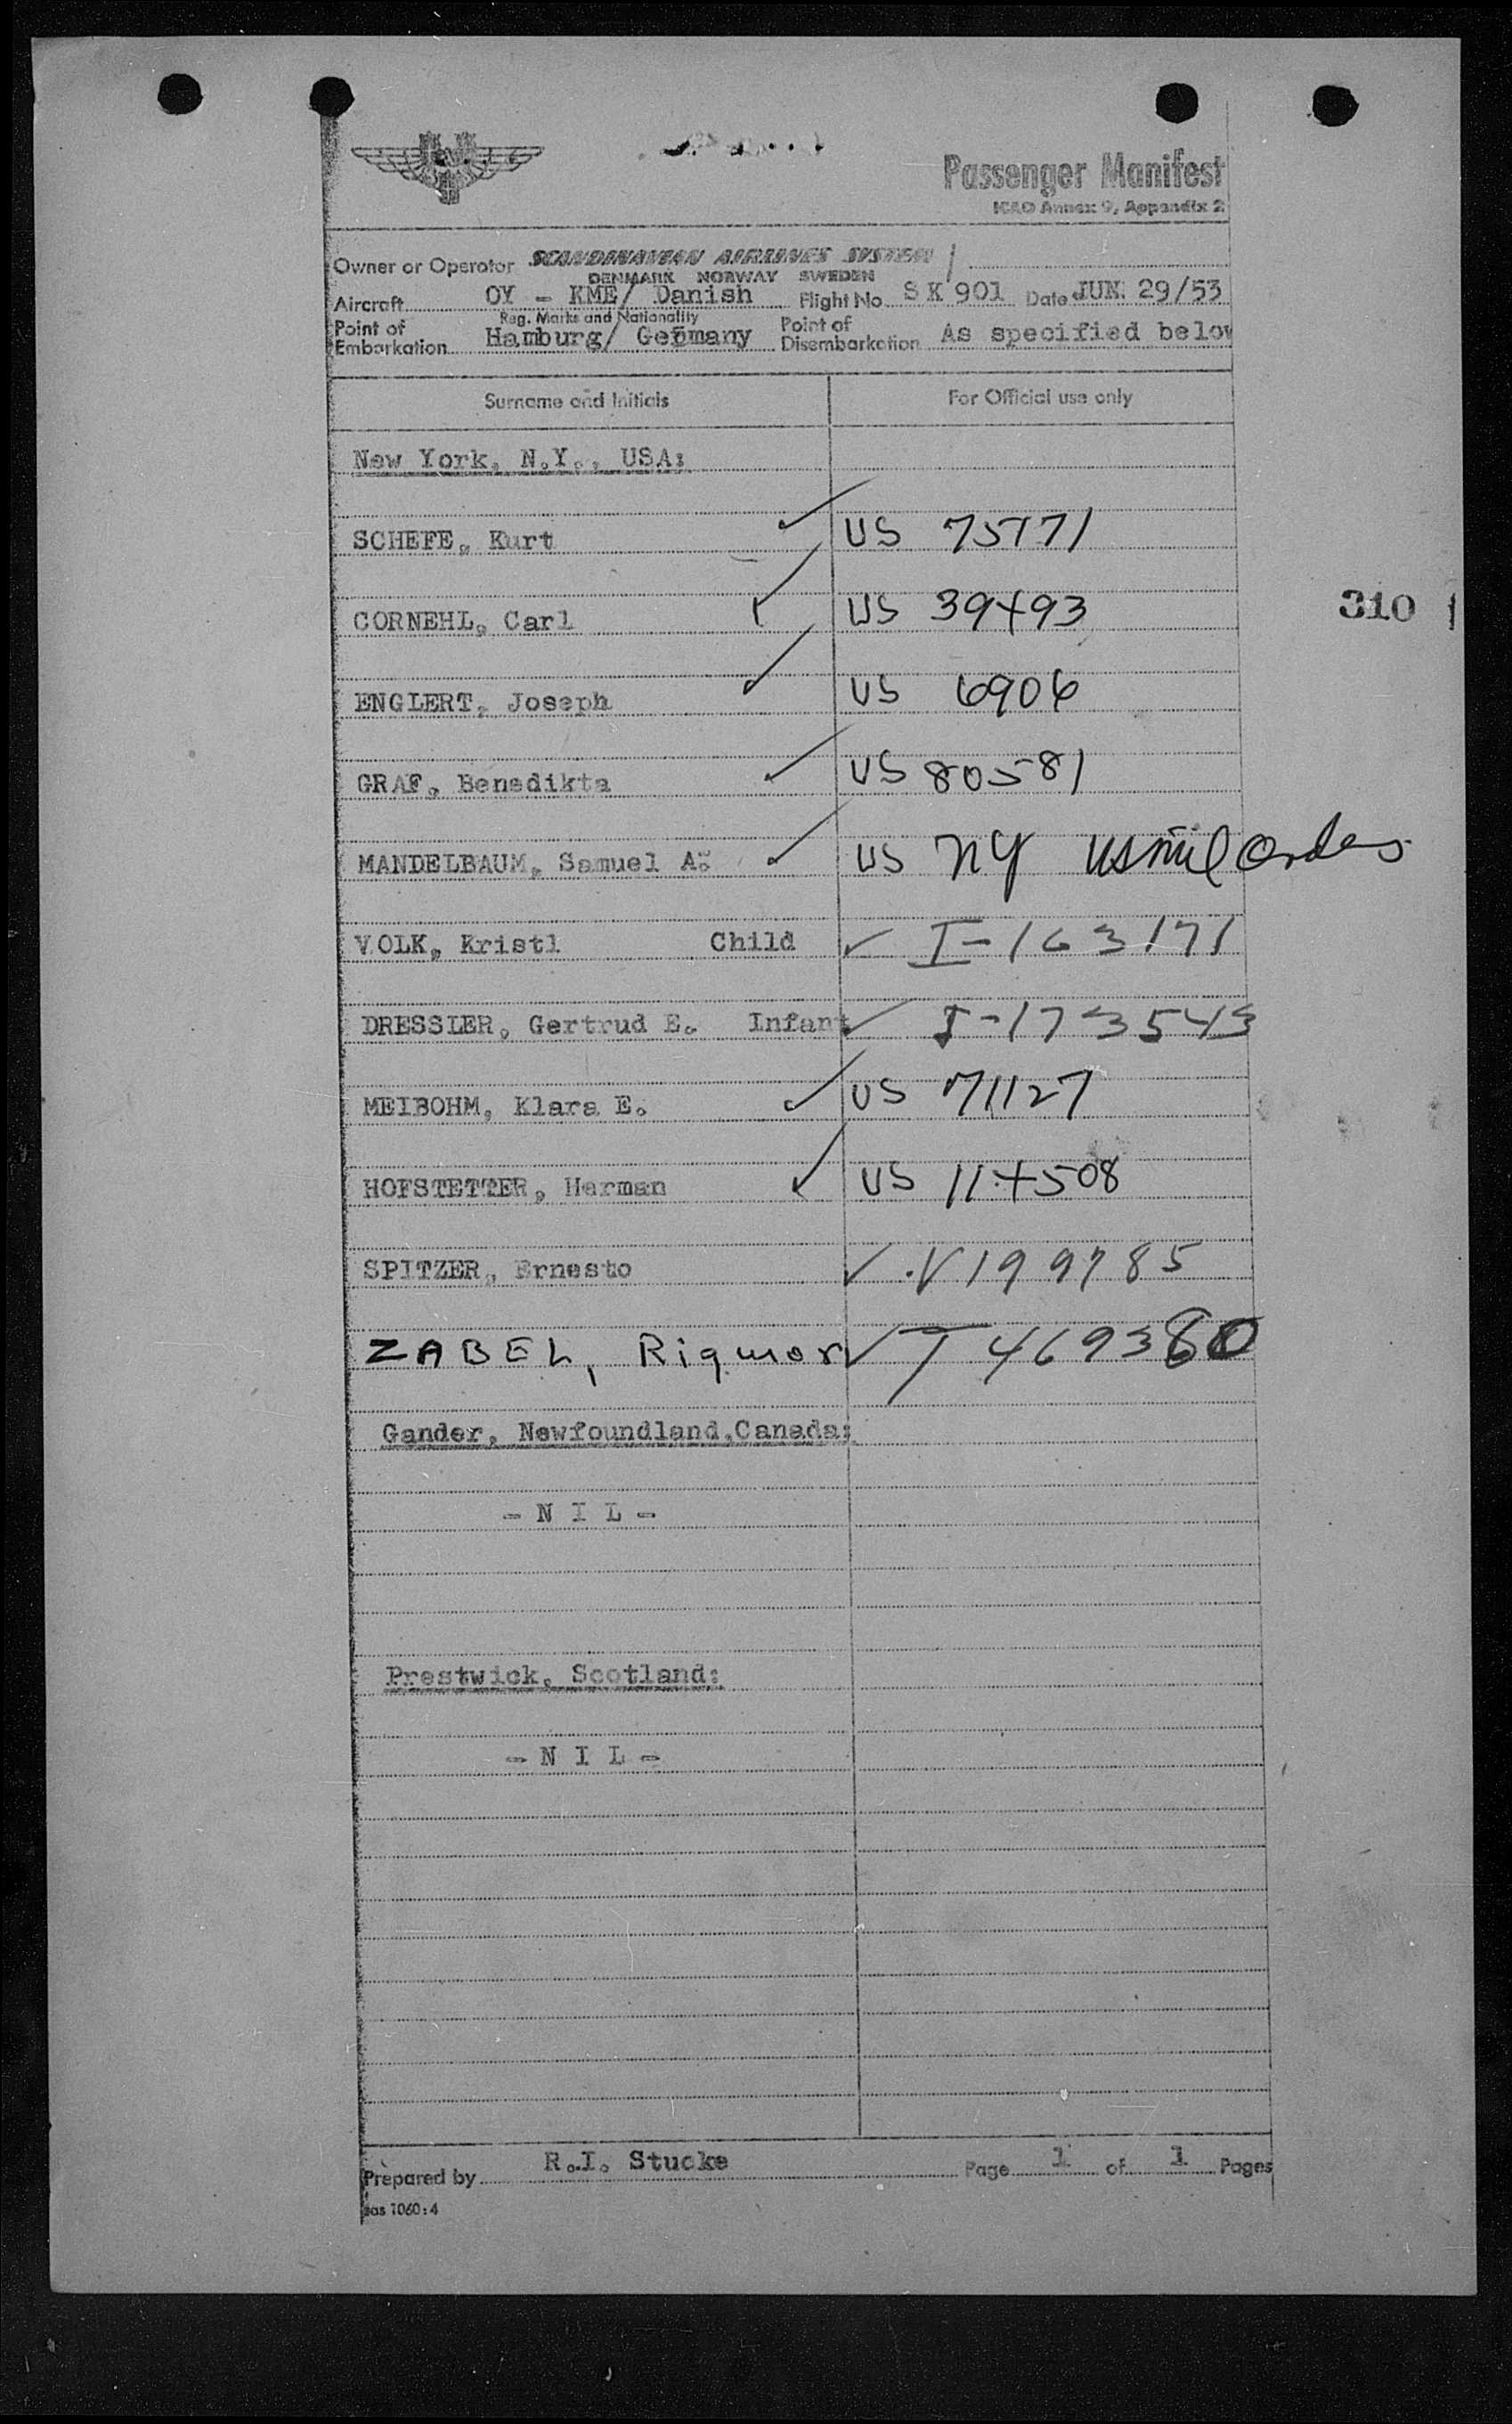 Passenger Manifest
ICAO Annex 9, Appendix 2
Owner or Operator SCANDINAVIAN AIRLINES SYSTEM
DENMARK NORWAY SWEDEN
Aircraft OY - KME/ Danish Flight No. SK 901 Date JUN. 29/53
Reg. Marks and Nationality
Point of Embarkation Hamburg/ Germany Point of Disembarkation As specified below
Surname and Initials For Official use only
New York, N.Y., USA:
SCHEFE, Kurt US 75771
CORNEHL, Carl US 39493
310
ENGLERT, Joseph US 6906
GRAF, Benedikta US 80581
MANDELBAUM, Samuel A. US NY US mil Orders
VOLK, Kristl Child I-163171
DRESSLER, Gertrud E. Infant I-173543
MEIBOHM, Klara E. US 71127
HOFSTETTER, Herman US 114508
SPITZER, Ernesto V 199785
ZABEL, Rigmor T 469380
Gander, Newfoundland, Canada:
- N I L -
Prestwick, Scotland:
- N I L -
Prepared by R.I. Stucke Page 1 of 1 Pages
sas 1060:4